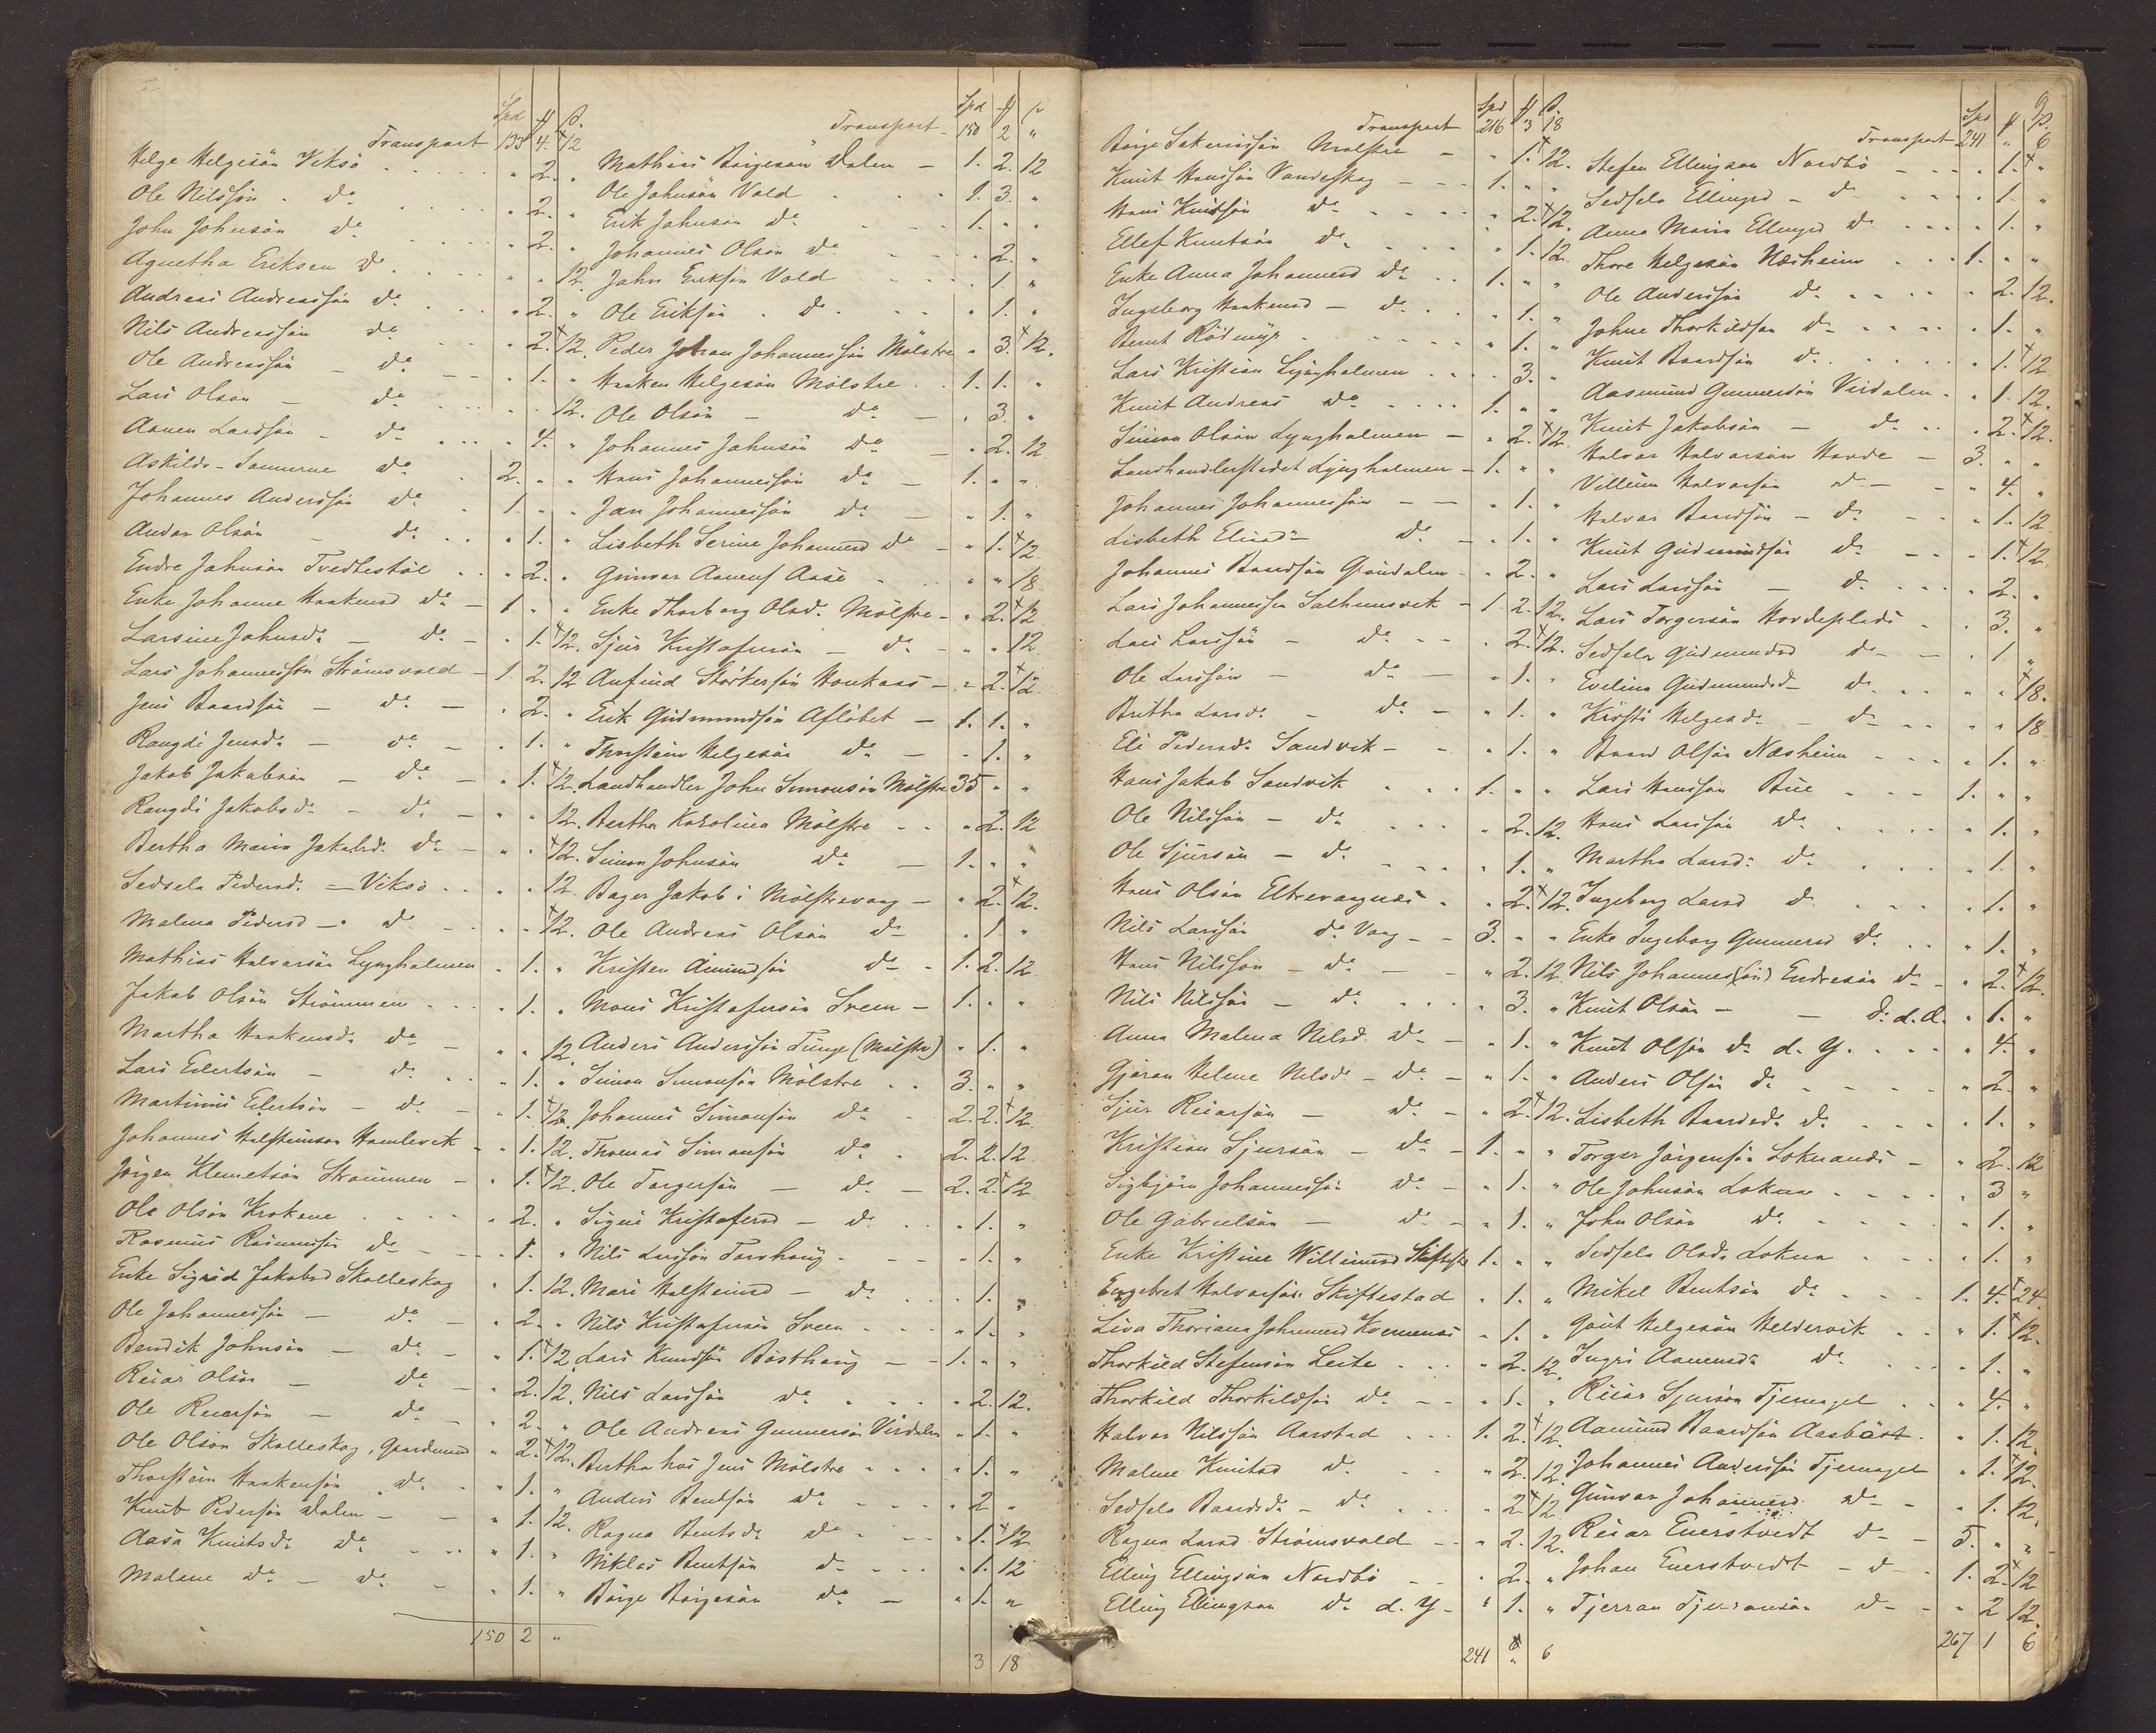 Spd ₰ β.
Transport 133 4. 12
Helge Helgesön Viksö " 2. "
Ole Nilssön do " 2. "
John Johnsön do " 2. "
Agnetha Eriksen do " " 12.
Andreas Andreassön do " 2. "
Nils Andreassön do " 2. 12.
Ole Andreassön do " 1. "
Lars Olsön do " " 12.
Aanen Larssön do " 4. "
Askilds-Sønnerne do 2. " "
Johannes Anderssön do 1. " "
Andar Olsön do " 1. "
Endre Johnsön Tvedtestöl " 2. "
Enke Johanne Haakensd do 1 " "
Larsine Johnsdr do " 1. 12.
Lars Johannessön Strömsvold 1 2. 12
Jens Baardsön do " 2. "
Rangdi Jensdr do " 1. "
Jakob Jakobsön do " 1. 12.
Rangdi Jakobsdr do " " 12.
Bertha Maria Jakobsd. do " " 12.
Sedsela Pedersd. Viksö " " 12
Malena Pedersd do " " 12.
Mathias Halvorsön Lyngholmen " 1. "
Jakob Olsön Strömmen " 1. "
Martha Haakensdr do " " 12.
Lars Eilertsön do " 1. "
Martinus Eilertsön do " 1. 12.
Johannes Halsteinson Hamlevik " 1. 12.
Jörgen Klemetsön Strömmen " 1. 12.
Ole Olsön Krokene " 2. "
Rasmus Rasmussön do " 1. "
Enke Sigrid Jakobsd Skolleskog " 1. 12.
Ole Johannessön do " 2. "
Bendik Johnsön do " 1. 12
Reiar Olsön do " 2. 12.
Ole Reiarsön do " 2. "
Ole Olsön Skolleskog, Gaardmand " 2. 12.
Thorstein Haakensön do " 1. "
Knut Pedersön Dalen " 1. 12.
Aasa Knutsdr do " 1. "
Malene do do " 1. "
150 2 "
Spd ₰ β
Transport 150 2 "
Mathias Börgesön Dalen 1. 2. 12
Ole Johnsön Vold 1. 3. "
Erik Johnsön do 1. " "
Johannes Olsön do " 2. "
John Eriksön Vold " 1 "
Ole Eriksön do " 1. "
Peder Johan Johannessön Mölstre " 3. 12.
Haaken Helgesön Mölstre 1. 1. "
Ole Olsön do " 3. "
Johannes Johnsön do " 2. 12
Hans Johannessön do 1. " "
Jan Johannessön do " 1. "
Lisbeth Serine Johannesd do " 1. 12
Gunvor Aanensd Aase " " 18
Enke Thorborg Olsdr Mölstre " 2. 12
Sjur Kristofersön do " " 12
Anfind Störkersön Haukaas " 2. 12
Erik Gudmundsön Aflöbet 1. 1. "
Thorstein Helgesön do " 1. "
Landhandler John Simonsön Mölstre 35 " "
Bertha Karolina Mölstre " 2. 12
Simon Johnsön do 1. " "
Bager Jakob i Mölstrevaag " 2. 12.
Ole Andreas Olsön do " 1 "
Kristen Amundsön do 1. 2. 12
Mons Kristofersön Sveen 1. " "
Anders Anderssön Tunge (Mölstre) " 1. "
Simon Simonsön Mölstre 3. " "
Johannes Simonsön do 2. 2. 12.
Thomas Simonsön do 2. 2. 12
Ole Torgersön do 2. 2. 12
Signe Kristofersd do " 1. "
Nils Larssön Torvhaug " 1. "
Mari Halsteinsd do " 1. "
Nils Kristofersön Sveen " 1. "
Lars Knudsön Bösthaug 1. " "
Nils Larssön do " 2. 12.
Ole Andreas Gunnersön Virdalen " 1. "
Bertha hos Jens Mölstre " 1. "
Anders Bentsön do " 2 "
Ragna Bentsdr do " 1. 12
Niklas Bentsön do " 1. 12
Börge Börgesön do " 1. "
3 18
Spd ₰ β.
Transport 216 3 18
Börge Sakariassön Mölstre " 1. 12.
Knut Hanssön Vandaskog 1. " "
Hans Knutsön do " 2. 12.
Ellef Knutsön do " 1. 12
Enke Anna Johannesd do 1. " "
Ingeborg Haakensd do " 1. "
Bernt Rödmyr " 1. "
Lars Kristian Lyngholmen " 3. "
Knut Andreas do 1. " "
Simon Olsön Lyngholmen " 2. 12
Landhandlerstedet Lyngholmen 1. " "
Johannes Johannessön " 1. "
Lisbeth Eliasdr do " 1. "
Johannes Baardsön Gröndalen " 2. "
Lars Johannessen Salhusvik 1 2. 12.
Lars Larssön do " 2. 12.
Ole Larssön do " 1. "
Britha Larsdr do " 1. "
Eli Pedersdr Sandvik " 1. "
Hans Jakob Sandvik 1. " "
Ole Nilssön do " 2. 12.
Ole Sjursön do " 1. "
Hans Olsön Eltrevaagnes " 2. 12.
Nils Larssön do Vaag 3. " "
Hans Nilsson do " 2. 12
Nils Nilssön do " 3. "
Anna Malena Nilsd. do " 1. "
Gjöran Helene Nilsdr do " 1. "
Sjur Reiarsön do " 2. 12.
Kristian Sjursön do 1. " "
Sigbjörn Johannessön do " 1. "
Ole Gabrielsön do " 1. "
Enke Kristine Willumsd Skiftestad 1. " "
Engebret Halvorsön Skiftestad " 1. "
Liva Thoriana Johnsend Kvernenes " 1. "
Thorkild Stefensön Leite " 2. 12.
Thorkild Thorkildsön do " 1. "
Halvor Nilssön Aarstad 1. 2. 12.
Malene Knutsd do " 2. 12.
Sedsela Baardsdr do " 2. 12.
Ragna Larsd. Strömsvold " 2. 12.
Elling Ellingsön Nordbö " 2. "
Elling Ellingsøn do d. Y. " 1. "
241 " 6
Spd ₰ β.
Transport 241 " 6
Stefen Ellingson Nordbö " 1. "
Sedsela Ellingsd do " 1. "
Anna Maria Ellingsd do " 1. "
Thore Helgesön Næsheim 1. " "
Ole Anderssön do " 2. 12.
Johne Thorkildsen do " 1. "
Knut Baardsön do " 1. 12.
Aasmund Gunnersön Virdalen " 1. 12.
Knut Jakobsön do " 2. 12.
Halvor Halvorsön Hovde 3. " "
Villum Halvorsön do " 4. "
Halvor Baardsön do " 1. 12
Knut Gudmundsön do " 1. 12
Lars Larssön do " 2. "
Lars Torgersön Hovdeplads " 3. "
Sedsela Gudmundsd do " 1. "
Evelina Gudmundsd do " " 18.
Kristi Helgesdr do " " 18
Baard Olsön Næsheim " 1. "
Lars Hanssøn Bue 1. " "
Hans Larssön do " 1. "
Martha Larsdr do " 1. "
Ingeborg Larsd do " 1. "
Enke Ingeborg Gunnersd do " 1. "
Nils Johannes(sön) Endresön do " 2. 12.
Knut Olsön do d. Æ. " 1. "
Knut Olsön do d. Y. " 4. "
Anders Olsön do " 2. "
Lisbeth Baardsdr do " 1. "
Torger Jörgensön Loknands " 2. 12
Ole Johnsön Lokna " 3 "
John Olsön do " 1. "
Sedsela Olsdr Lokna " 1. "
Mikel Bentsön do 1. 4. 24.
Gaut Helgesön Heldervik " 1. 12.
Ingri Aanensdr do " 1. "
Reiar Sjursön Tjernagel " 4. "
Aamund Baardsön Aasböst " 1. 12.
Johannes Anderssön Tjernagel " 1. 12.
Gunvor Johannesd. do " 1. 12.
Reiar Enerstvedt do 5. " "
Johan Enerstvedt do 1. 2. 12
Tjerran Tjerransön do " 2 12.
267 1 6